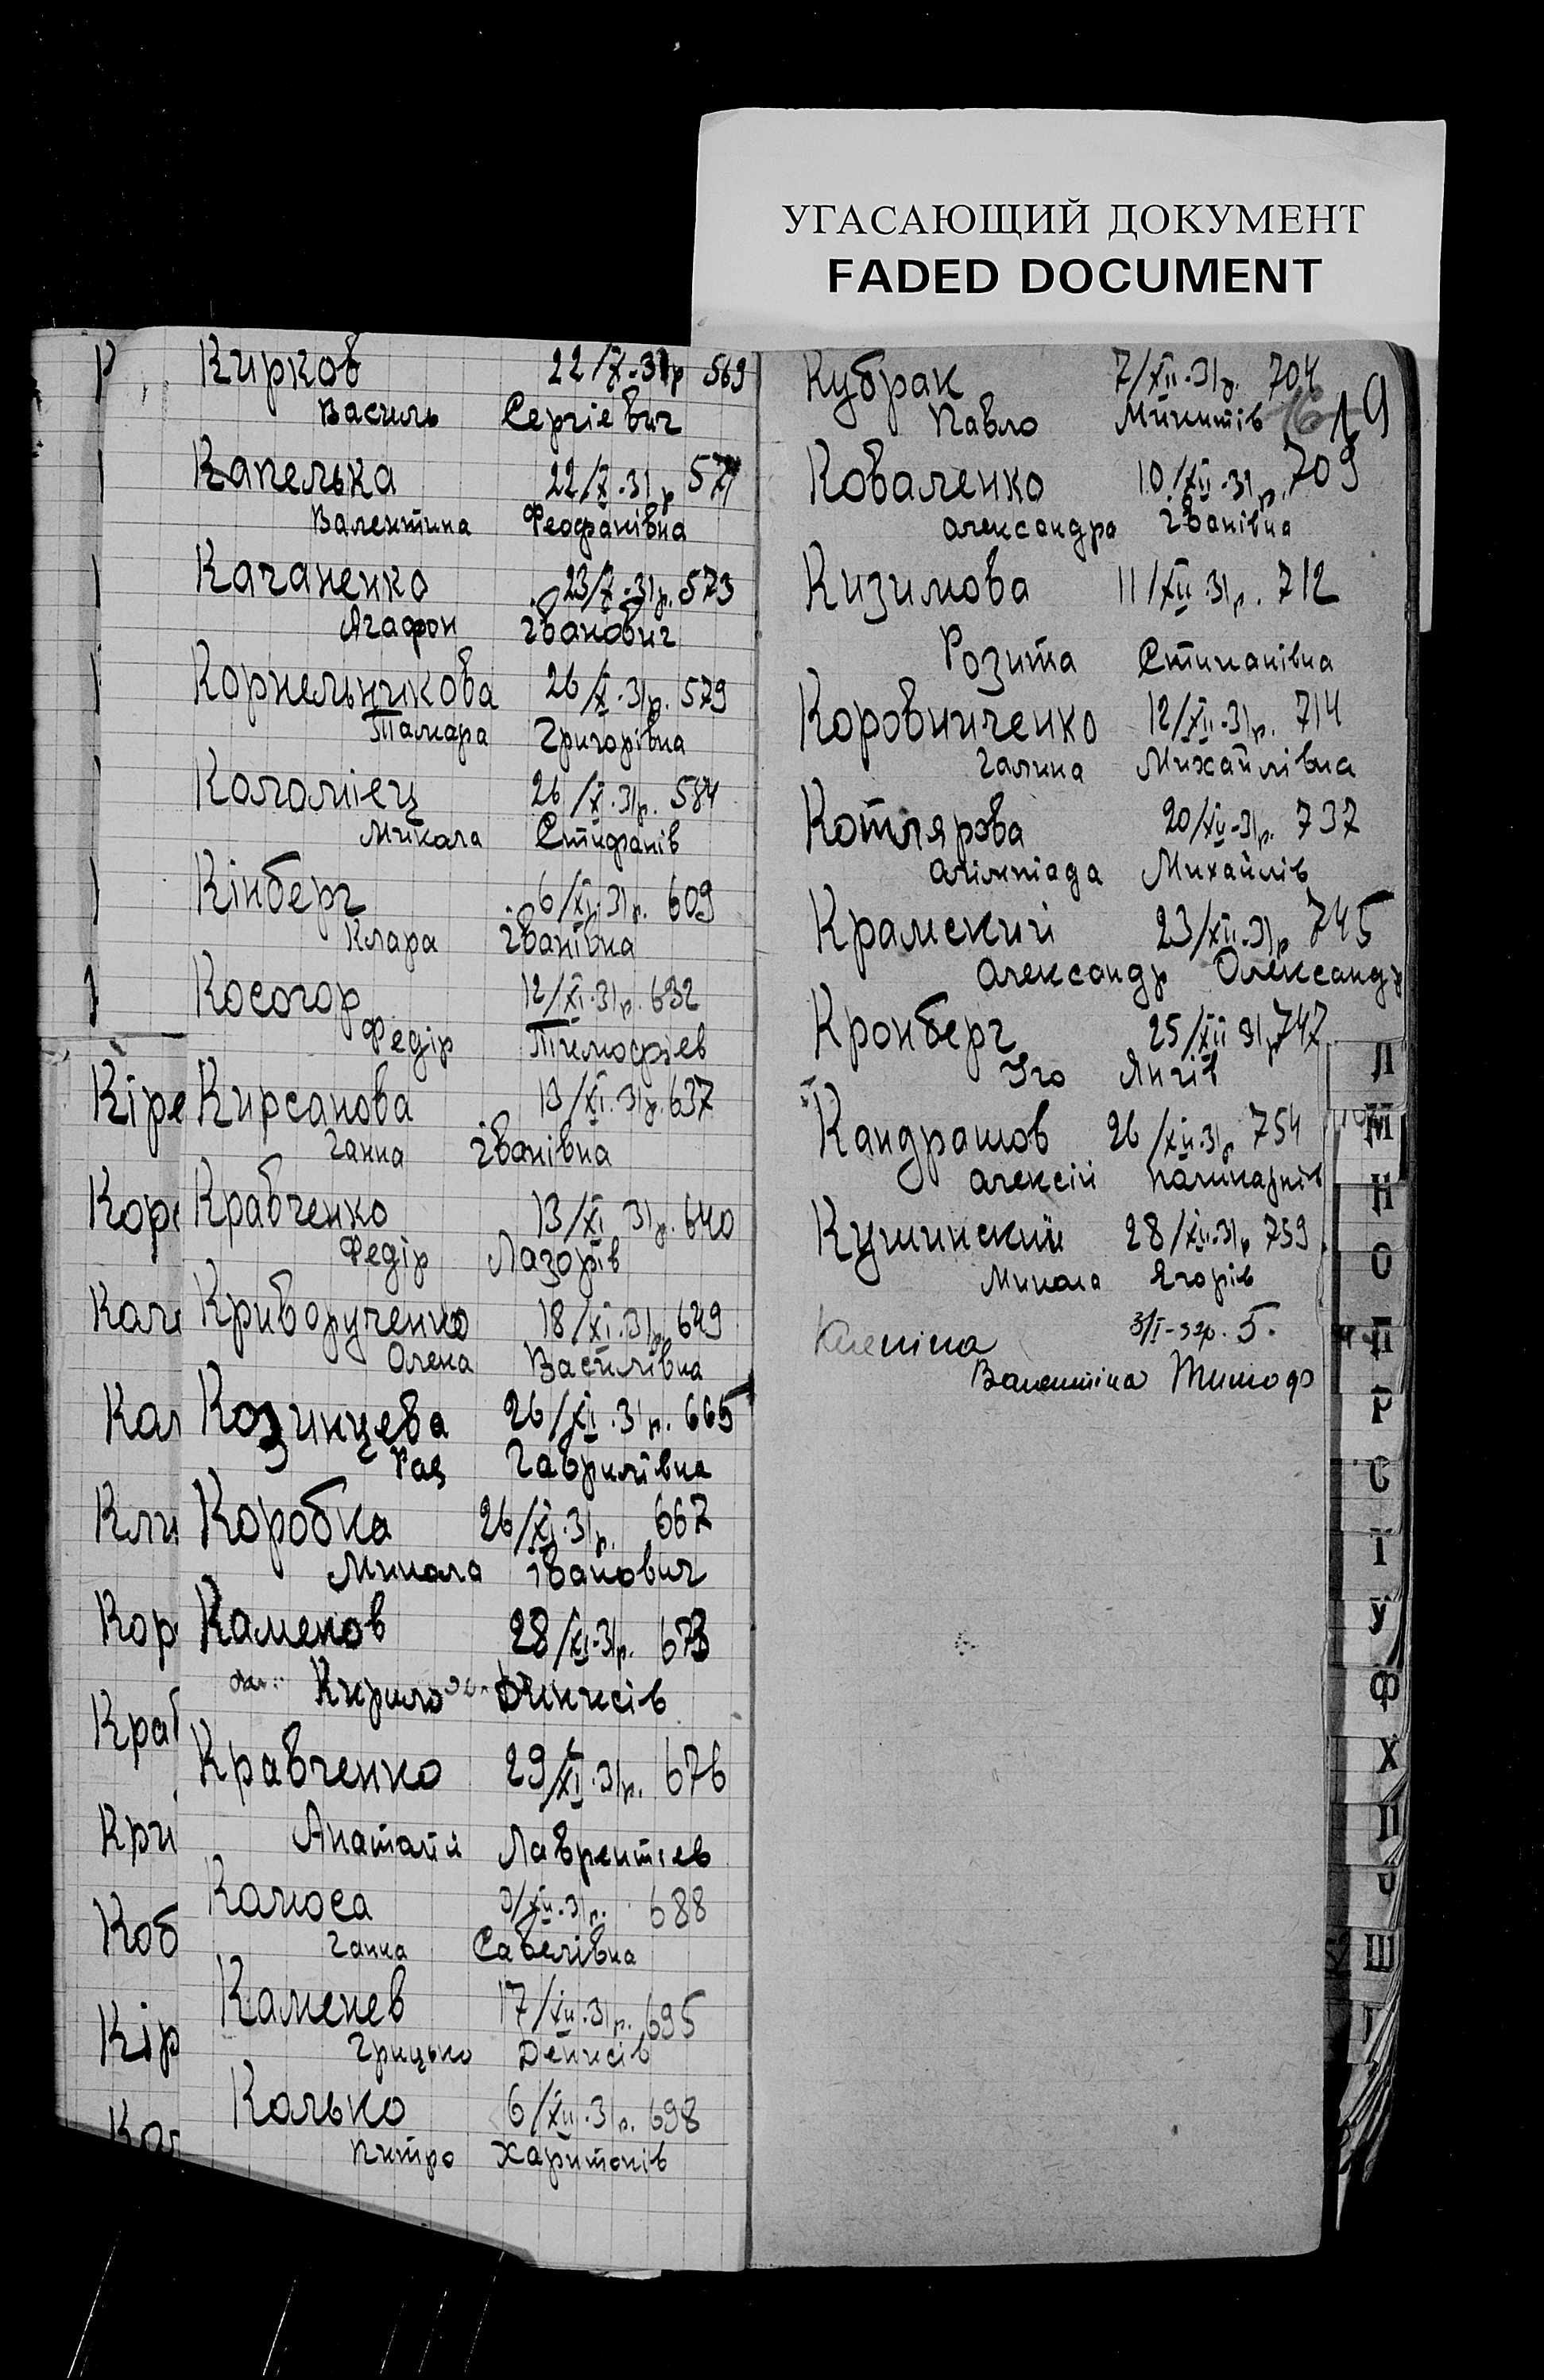 УГАСАЮЩИЙ ДОКУМЕНТ
FADED DOCUMENT
Кирков 22/X-31р 569
Василь Сергіевич
Капелька 22/X.31р 571
Валентина Феофанівна
Качаненко 23/X.31р. 573
Агафон Іванович
Корнельчикова 26/X.31р. 579
Тамара Григорівна
Коломіец 26/X.31р. 584
Микола Стифанів
Кінберг 6/XI.31р. 609
Клара Іванівна
Косогор 12/XI.31р. 632
Федір Тимофіев
Кіре Кирсанова 13/XI.31р. 637
Ганна Іванівна
Кор Кравченко 13/XI 31р. 640
Федір Лазорів
Кач Криворученко 18/XI.31р. 649
Олена Василівна
Ка Козинцева 26/XI.31р. 665
Рая Гаврилівна
Кли Коробка 26/XI.31р. 667
Микола Іванович
Кор Каменов 28/XI.31р. 673
Кирило Динисів
Кра
Кравченко 29/XI.31р. 676
Кри Анатолій Лаврентіев
Калюса 3/XII.31р. 688
Коб Ганна Савелівна
Каменев 17/XII.31р. 695
Кір Грицько Денисів
Калько 6/XII.31р. 698
Ка Питро Харитонів
Кубрак 7/XII.31р. 704
Павло Микитів 19
Коваленко 10/XII.31р. 709
Александра Іванівна
Кизимова 11/XII.31р. 712
Розита Стипанівна
Коровниченко 12/XII.31р. 714
Галина Михайлівна
Котлярова 20/XII-31р. 737
Олімпіада Михайлів
Крамский 23/XII.31р 745
Александр Олександр
Кронберг 25/XII 31р 747
Уго Янгів
Кандрашов 26/XII.31р 754
Алексій Паликарпів
Кушинский 28/XII.31р 759
Микола Ягорів
3/I-32р. 5.
Валентіна Тимоф
Л
М
Н
О
П
Р
С
Т
У
Ф
Х
Ц
Ш